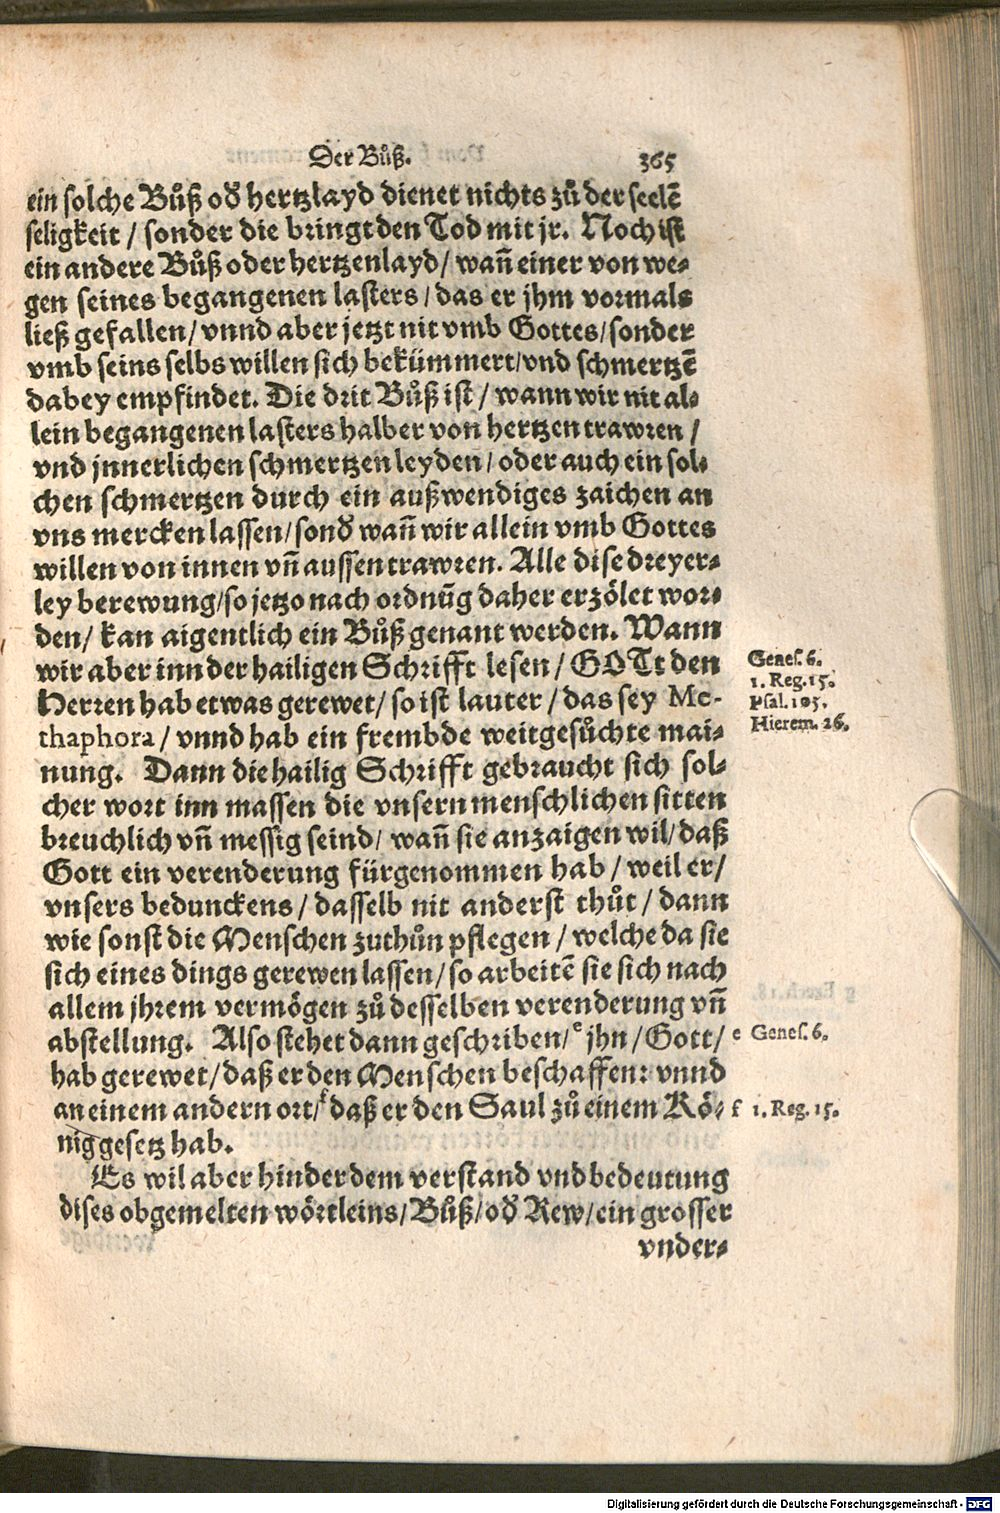 Der Bůß. 365
ein solche Bůß od̕ hertzlayd dienet nichts zů der seelē
seligkeit / sonder die bringt den Tod mit jr. Noch ist
ein andere Bůß oder hertzenlayd / wañ einer von we-
gen seines begangenen lasters / das er jhm vormals
ließ gefallen / vnnd aber jetzt nit vmb Gottes / sonder
vmb seins selbs willen sich bekümmert / vnd schmertzē
dabey empfindet. Die drit Bůß ist / wann wir nit al-
lein begangenen lasters halber von hertzen trawren /
vnd jnnerlichen schmertzen leyden / oder auch ein sol-
chen schmertzen durch ein außwendiges zaichen an
vns mercken lassen / sond̕ wañ wir allein vmb Gottes
willen von innen vñ aussen trawren. Alle dise dreyer-
ley berewung / so jetzo nach ordnūg daher erzölet wor-
den / kan aigentlich ein Bůß genant werden. Wann
wir aber inn der hailigen Schrifft lesen / GOTt den
Herren hab etwas gerewet / so ist lauter / das sey Me-
thaphora / vnnd hab ein frembde weitgesůchte mai-
nung. Dann die hailig Schrifft gebraucht sich sol-
cher wort inn massen die vnsern menschlichen sitten
breuchlich vñ messig seind / wañ sie anzaigen wil / daß
Gott ein verenderung fürgenommen hab / weil er /
vnsers bedunckens / dasselb nit anderst thůt / dann
wie sonst die Menschen zuthůn pflegen / welche da sie
sich eines dings gerewen lassen / so arbeitē sie sich nach
allem jhrem vermögen zů desselben verenderung vñ
abstellung. Also stehet dann geschriben / ᵉ jhn / Gott /
hab gerewet / daß er den Menschen beschaffen: vnnd
an einem andern ort / ᶠ daß er den Saul zů einem Kö-
nig gesetz hab.
Es wil aber hinder dem verstand vnd bedeutung
dises obgemelten wörtleins / Bůß / od̕ Rew / ein grosser
vnder-
Genes. 6.
1. Reg. 15.
Psal. 105.
Hierem. 26.
e Genes. 6.
f 1. Reg. 15.
Digitalisierung gefördert durch die Deutsche Forschungsgemeinschaft - DFG